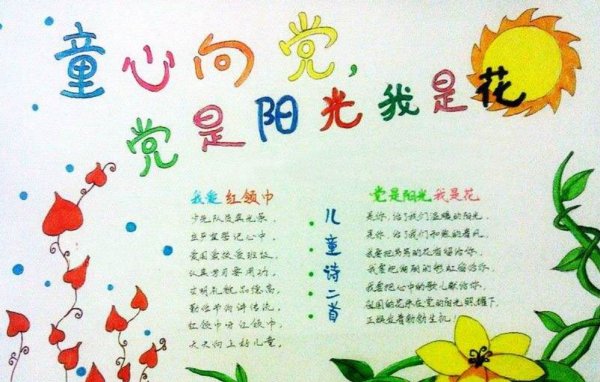 童心向党，
党是阳光我是花
我爱红领巾
少先队员真光荣，
庄严宣誓记心中，
爱国爱家爱班级，
认真学习要用功，
文明礼貌品德高，
勤俭节约讲传统，
红领巾呀红领巾，
天天向上好儿童。
儿童诗二首
党是阳光我是花
是你，给了我们温暖的阳光，
是你，给了我们和煦的春风，
我要把美丽的花香留给你，
我要把绚丽的彩虹留给你，
我要把心中的歌儿献给你，
祖国的花朵在党的阳光照耀下，
正焕发着勃勃生机！